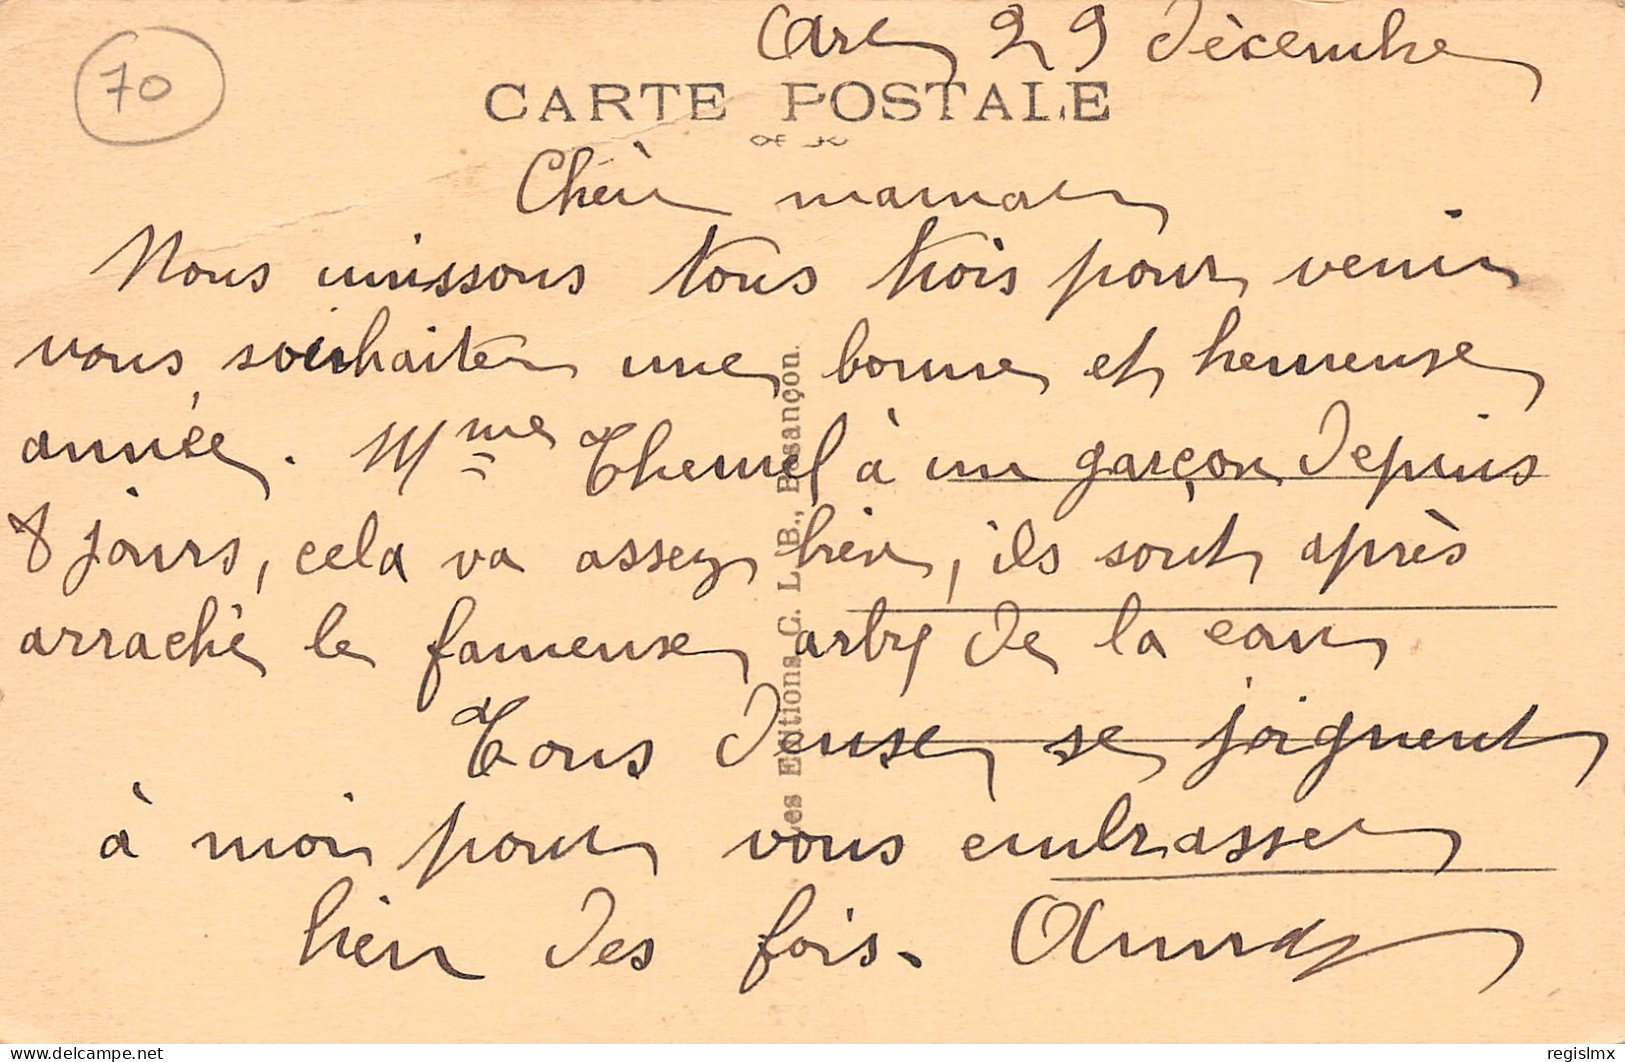 Arc 29 Décembre
70
CARTE POSTALE
Chère maman
Nous unissons tous trois pour venir
vous souhaiter une bonne et heureuse
année. Mme Themel à un garçon depuis
8 jours, cela va assez bien, ils sont après
arraché le fameuse arbre de la cour
Tous deuse se joignent
à moi pour vous embrasser
bien des fois.
Les Editions C. L. B., Besançon.
regislmx